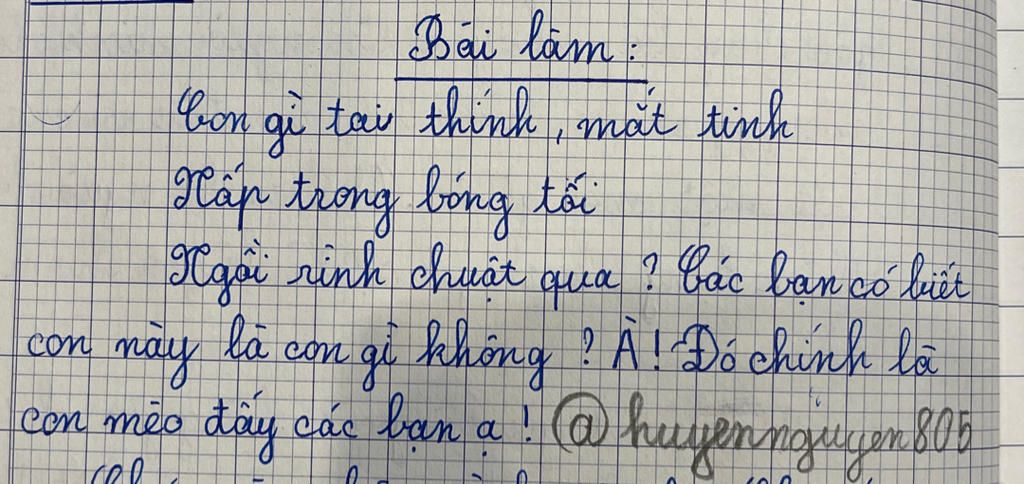 Bài làm:
Con gì tai thính, mắt tinh
Nấp trong bóng tối
Ngồi rình chuột qua? Các bạn có biết
con này là con gì không? À! Đó chính là
con mèo đấy các bạn ạ! @huyennguyen805